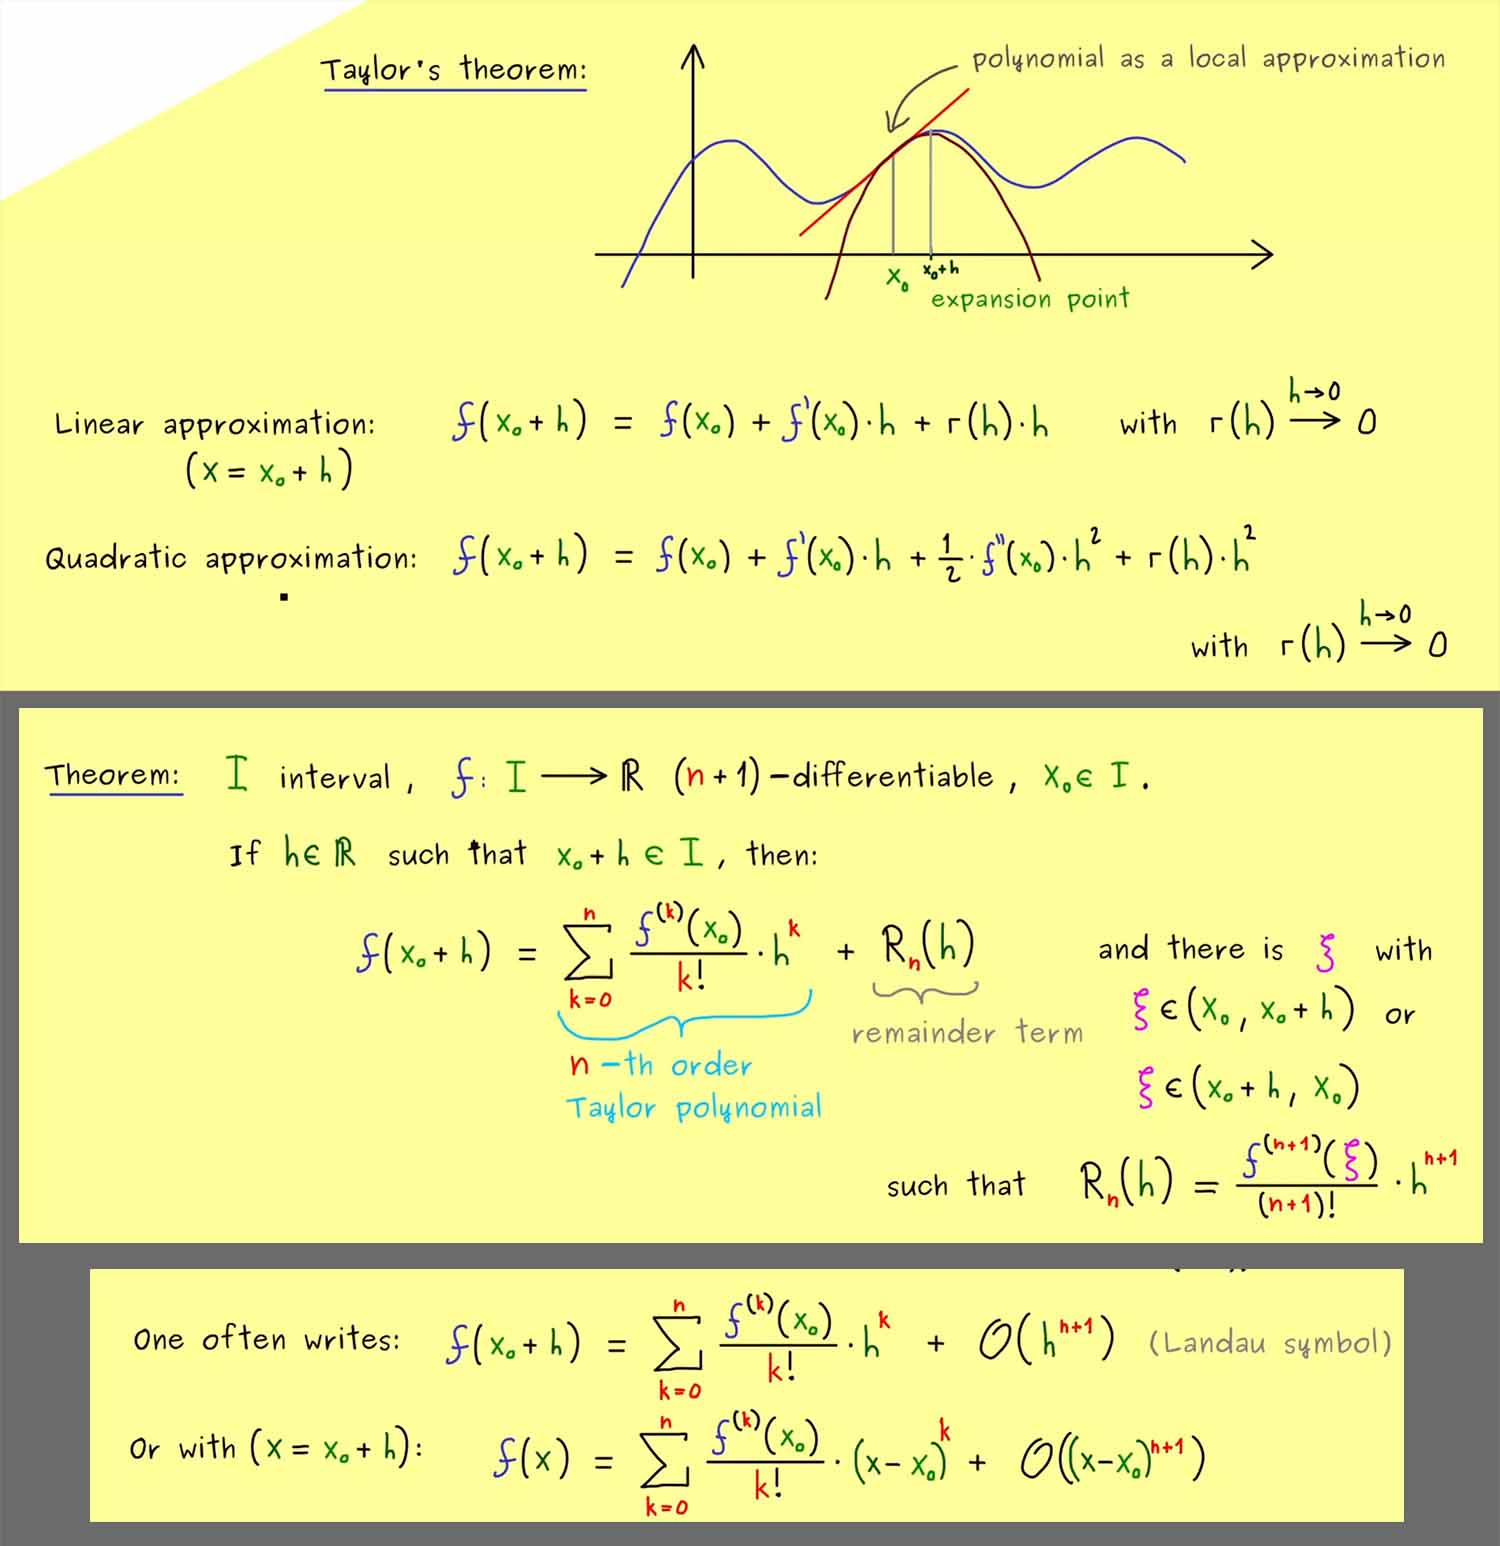 Taylor's theorem:
polynomial as a local approximation
x₀ x₀+h
expansion point
Linear approximation: f(x₀ + h) = f(x₀) + f'(x₀)·h + r(h)·h with r(h) →^{h→0} 0
(x = x₀ + h)
Quadratic approximation: f(x₀ + h) = f(x₀) + f'(x₀)·h + 1/2 · f''(x₀)·h² + r(h)·h²
with r(h) →^{h→0} 0
Theorem: I interval, f: I ⟶ ℝ (n+1)-differentiable, x₀ ∈ I.
If h ∈ ℝ such that x₀ + h ∈ I, then:
f(x₀ + h) = ∑_{k=0}^{n} f^{(k)}(x₀)/k! · h^k + R_n(h) and there is ξ with
ξ ∈ (x₀, x₀ + h) or
remainder term
n-th order
Taylor polynomial
ξ ∈ (x₀ + h, x₀)
such that R_n(h) = f^{(n+1)}(ξ)/(n+1)! · h^{n+1}
One often writes: f(x₀ + h) = ∑_{k=0}^{n} f^{(k)}(x₀)/k! · h^k + O(h^{n+1}) (Landau symbol)
Or with (x = x₀ + h): f(x) = ∑_{k=0}^{n} f^{(k)}(x₀)/k! · (x − x₀)^k + O((x−x₀)^{n+1})